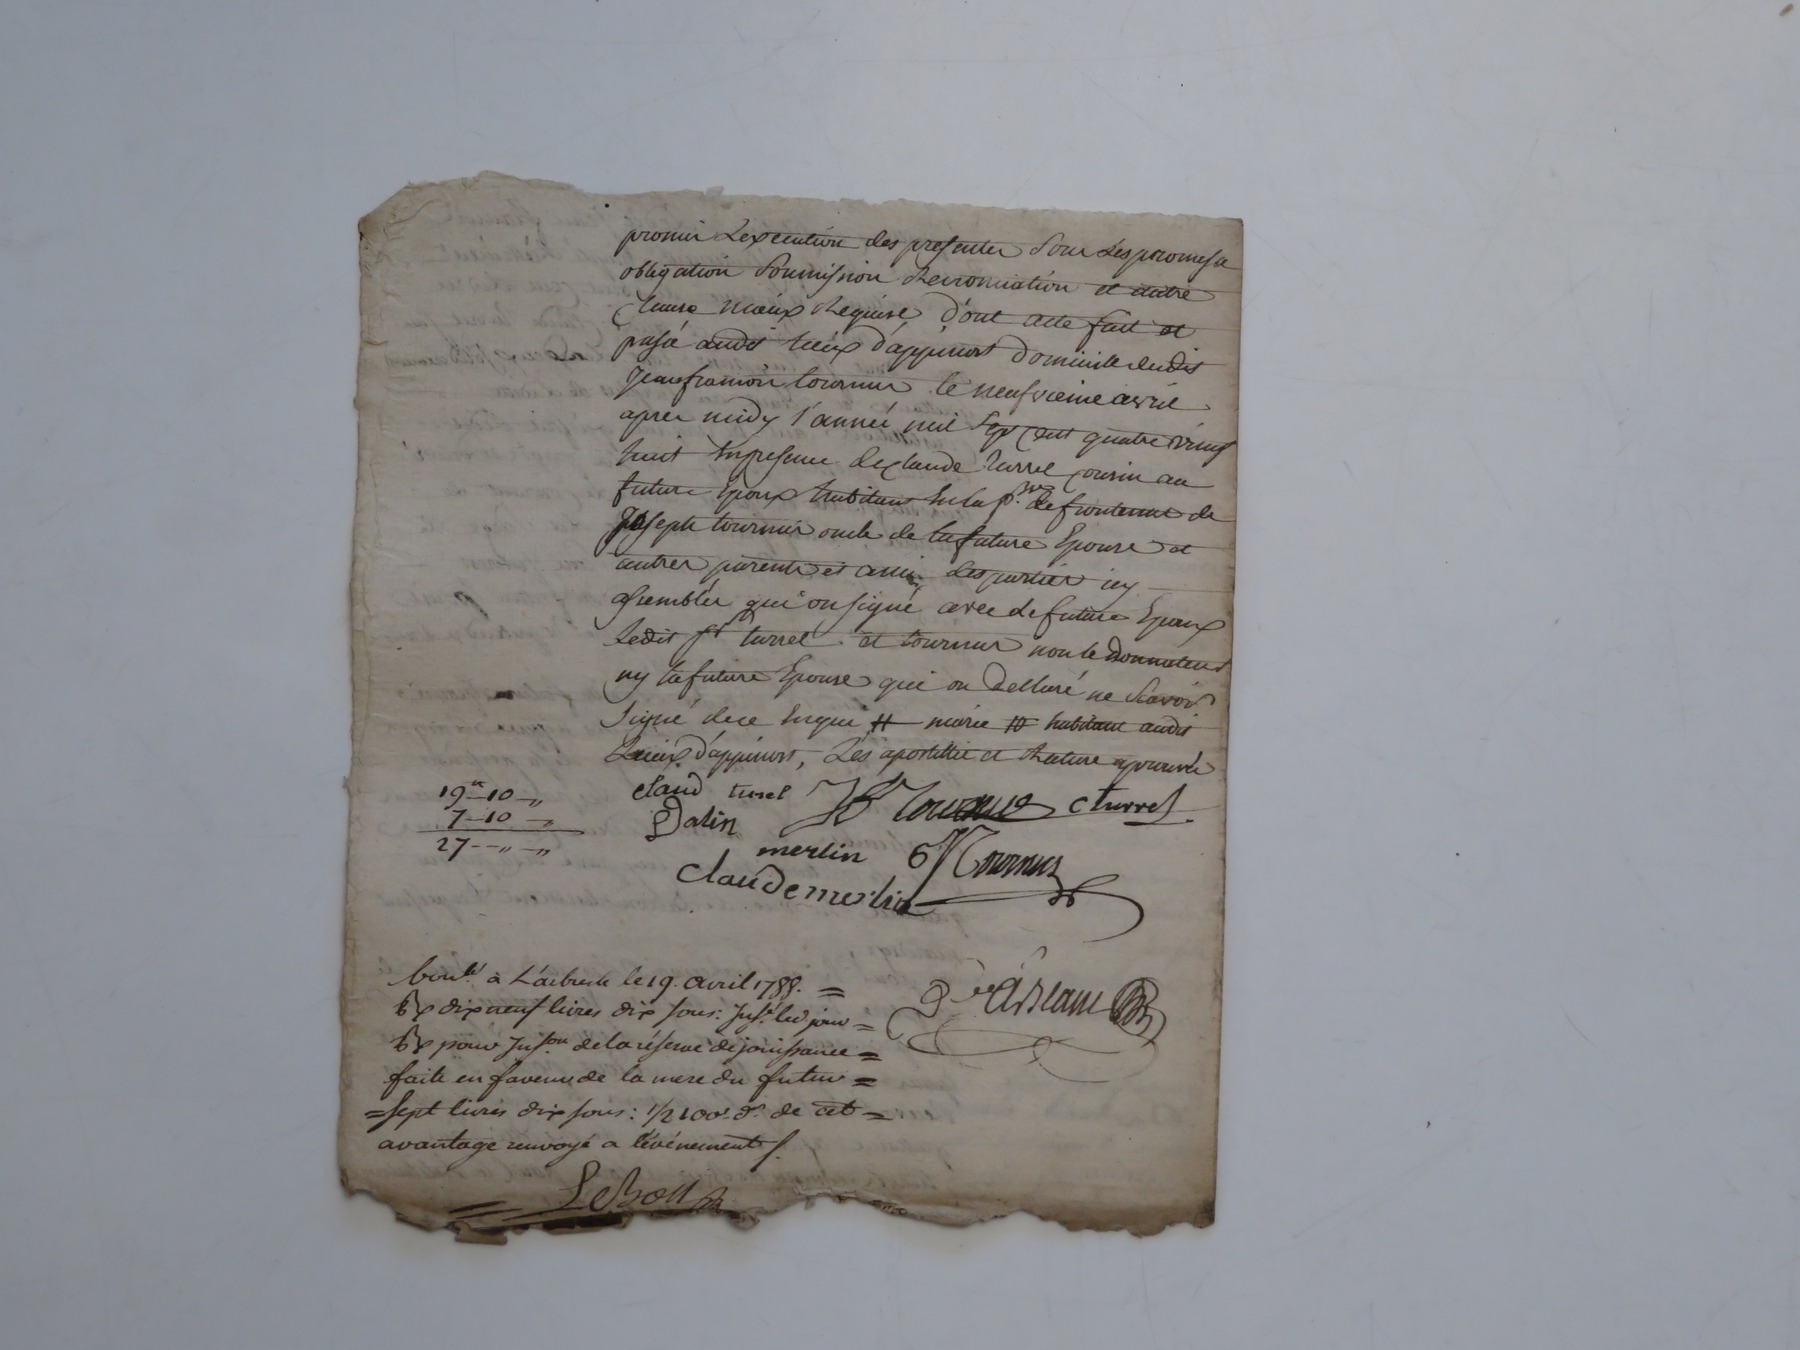 promis L'execution des presentes Sous Les promesse
obligation Soumission Renonciation et autre
Clause mieux Requise dont acte fait et
passé audit lieux d'appinost Domicille dudit
Jean françois tournus le neufvieme avril
apres midy l'année mil Sept Cent quatre vingt
huit En presence de Claude turrel cousin au
future Epoux habitant En la p.sse de de
Joseph tournus oncle de la future Epouse et
autres parents et amis des parties icy
assemblés qui on signé avec le future Epoux
Ledit S.r turrel et tournus non le
ny la future Epouse qui on Dellaré ne Scavoir
Signé de ce Enquis # marie # habitant audit
Lieux d'appinost, Les apostille et Rature aprouvés
19tt-10-"
7-10-"
27-"-"
claud turel JB tournus C turrel
Dalin
merlin tournus
Claude merlin
à L'arbresle le 19 avril 1788. =
dix neuf livres dix sous: =
pour de la réserve de jouissance =
faite en faveur de la mere du futur =
= sept livres dix sous: 1/2 100.e d. de cet =
avantage renvoyé a l'événement
LeBoll